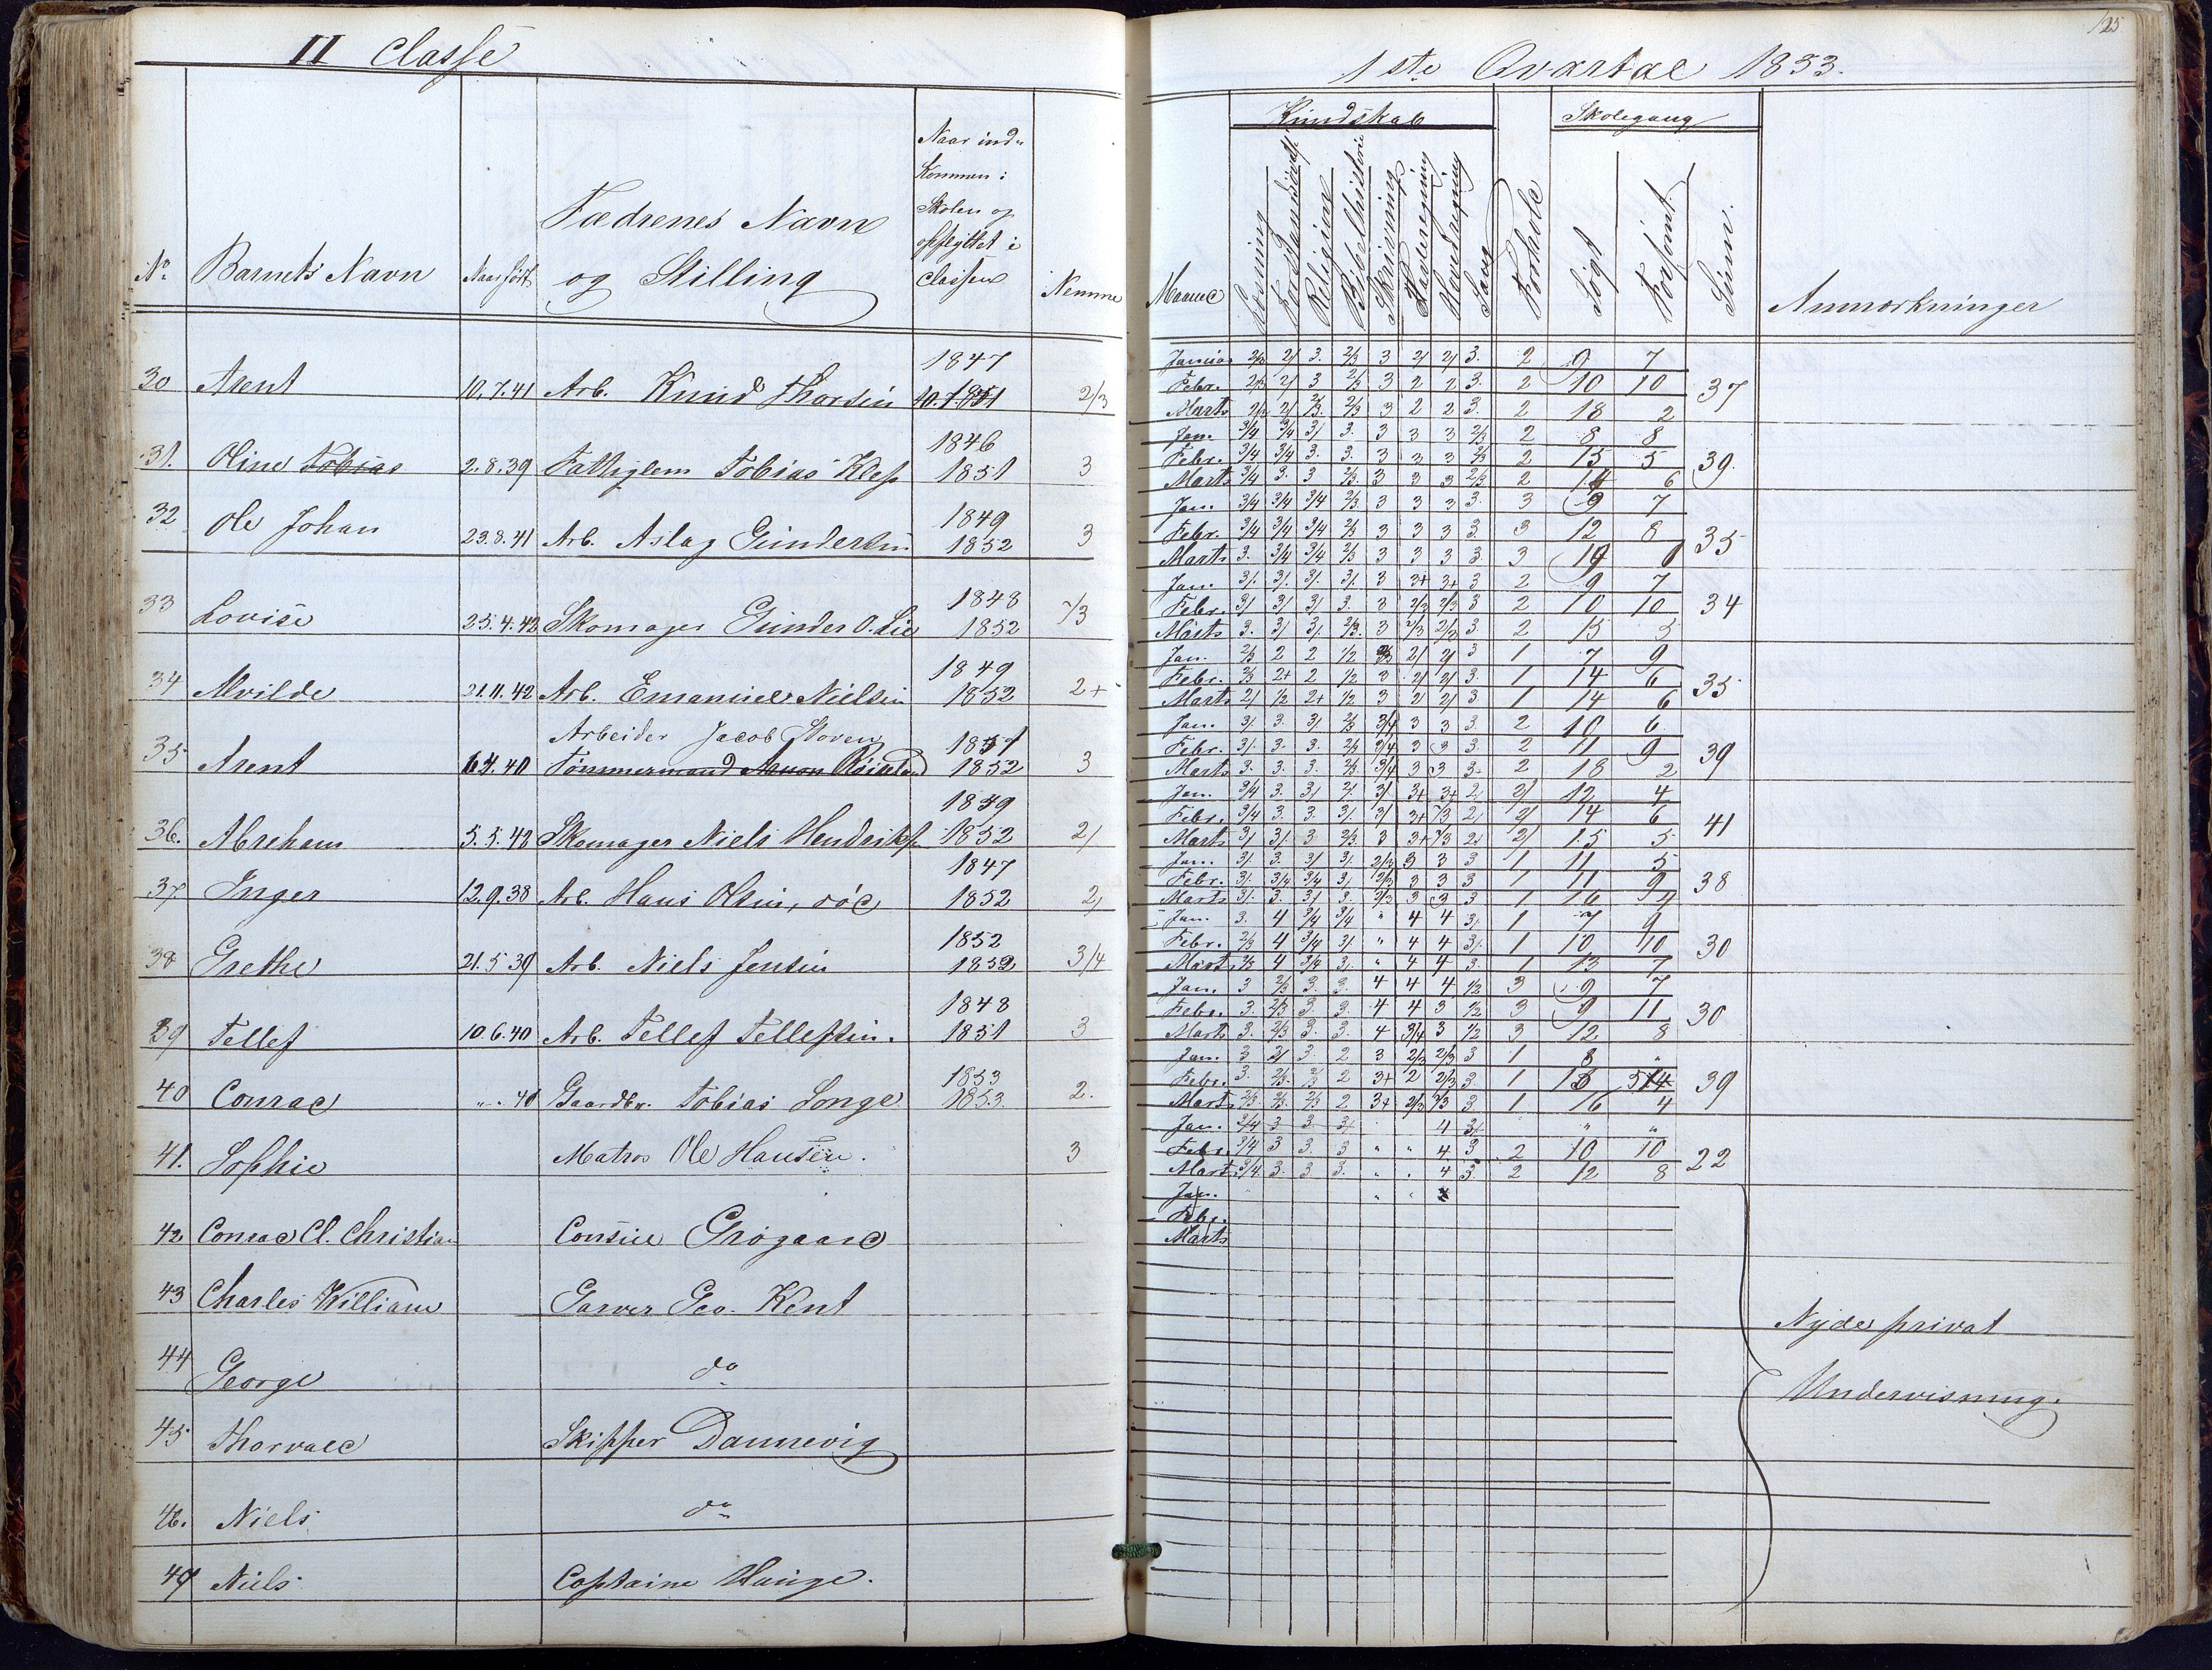 II Classe
No
Barnets Navn
Naar født
Fædrenes Navn
og Stilling
Naar ind-
kommen i
Skolen og
opflyttet i
Classen
Nemme
30 Arent 10.7.41 Arb. Knud Thorsen 1847 2/3
31. Oline Tobias 2.8.39 Fattiglem Tobias Klep 1846 1851 3
32 Ole Johan 23.8.41 Arb. Aslag Gundersen 1849 1852 3
33 Lovise 25.4.42 Skomager Gunder O. Lie 1848 1852 /3
34 Alvilde 21.11.42 Arb. Emanuel Nielsen 1849 1852 2+
Arbeider Jacob Stoven
35 Arent 40 Tømmermand 1852 3
36. Abraham 5.5.42 Skomager Niels Hendriks. 1849 1852 2/
37. Inger 12.9.38 Arb. Hans Olsen, 1847 1852 2/
38 Grethe 21.5.39 Arb. Niels Jensen 1852 1852 3/4
39 Tellef 10.6.40 Arb. Tellef Tellefsen. 1848 1851 3
40 Conrad " " 40 Gaardbr. Tobias Longe 1853 1853 2.
41. Sophie Matros Ole Hansen. 3
42 Conrad Cl. Christian Consul Grøgaard
43 Charles William Garver Geo. Kent
44 George do
45 Thorvald Skipper Dannevig
46. Niels do
47 Niels Captaine Hauge.
125
1ste Qvartal 1853.
Kundskab
Skolegang
Maaned
Læsning
Religion
Bibelhistorie
Skrivning
Tavleregning
Hovedregning
Sang
Forhold
Søgt
Forsømt
Sum.
Anmærkninger
Januar 2/3 2/ 3. 2/3 3 2/ 2/ 3. 2 9 7
Febr. 2/3 2/ 3 2/3 3 2 2 3. 2 10 10 37
Marts 2/3 2/ 2/3. 2/3 3 2 2 3. 2 18 2
Jan. 3/4 3/4 3/ 3. 3 3 3 2/3 2 8 8
Febr. 3/4 3/4 3. 3. 3 3 3 2/3 2 15 5 39.
Marts 3/4 3. 3 2/3. 3 3 3 2/3 2 14 6
Jan. 3/4 3/4 3/4 2/3. 3 3 3 3. 3 9 7
Febr. 3/4 3/4 3/4 2/3 3 3 3 3. 3 12 8 35
Marts 3. 3/4 3/4 2/3 3 3 3 3. 3
Jan. 3/. 3/. 3/. 3/. 3 3+ 3+ 3 2 9 7
Febr. 3/ 3/ 3/ 3. 3 2/3 2/3 3 2 10 10 34
Marts 3. 3/ 3/. 2/3. 3 2/3 2/3 3. 2 15 5
Jan. 2/3 2 2 1/2 2/ 2/ 3 1 7 9
Febr. 2/3 2+ 2 1/2 3 2/ 2/ 3. 1 14 6 35
Marts 2/ 1/2 2+ 1/2 3 2/ 2/ 3 1 14 6
Jan. 3/. 3. 3/. 2/3 3/4 3 3 3. 2 10 6
Febr. 3/. 3. 3. 2/3 3/4 3 3 3. 2 11 9 39
Marts 3. 3. 3. 2/3 3/4 3 3 3. 2 18 2
Jan. 3/4 3. 3/ 2/ 3/ 3+ 3+ 2/ 2/ 12 4
Febr. 3/4 3. 3. 3/. 3/ 3+ /3 2/ 2/ 14 6 41
Marts 3/ 3/. 3 2/3 3 3+ /3 2/ 2/ 15 5
Jan. 3/. 3. 3/ 3/. 2/3 3 3 3 1 11 5
Febr. 3/. 3/4 3/4 3/. 2/3 3 3 3 1 11 9 38
Marts 3/. 3. 3/ 3. 2/3 3 3 3 1 16 4
Jan. 3. 4 3/4 3/4 " 4 4 3/. 1 7 9
Febr. 2/3 4 3/4 3/. " 4 4 3/. 1 10 10 30
Marts 2/3 4 3/4 3/. " 4 4 3. 1 13 7
Jan. 3 2/3 3. 3. 4 4 4 1/2 3 9 7
Febr. 3. 2/3 3. 3. 4 4 3 1/2 3 9 11 30
Marts 3. 2/3 3. 3 4 3/4 3 1/2 3 12 8
Jan. 3 2/ 3. 2 3 2/3 2/3 3 1 8 "
Febr. 3. 2/3. 2/3 2 3+ 2 2/3 3. 1 15 5 39
Marts 2/3 2/3. 2/3 2 3+ 2/3 2/3 3. 1 16 4
Jan. 3/4 3 3 3/ 4 3/. " "
Febr. 3/4 3 3. 3 " " 4. 3 2 10 10 22
Marts 3/4 3. 3. 3. " " 4 3. 2 12 8
Jan.
Febr.
Marts
Nyde privat
Undervisning.